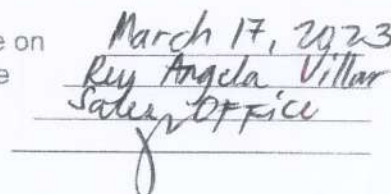 e on March 17, 2023
e Rey Angela Villar
Sales Office